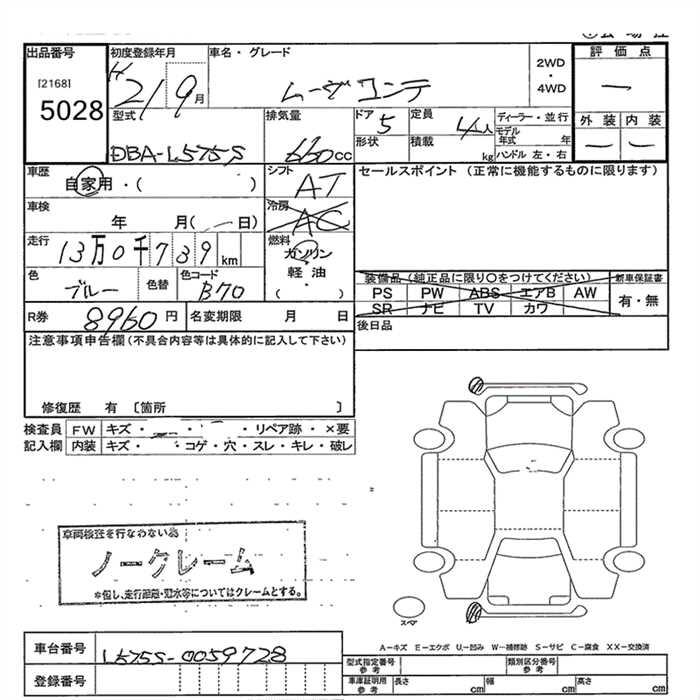 出品番号 初度登録年月 車名・グレード 評価点
[2168] H21 9月 ムーヴコンテ 2WD ・ 4WD ―
5028 型式 排気量 ドア 定員 ディーラー・並行 外装 内装
DBA-L575S 660cc 5 4人 モデル年式 年 ― ―
形状 積載 kg ハンドル 左・右
車歴 自家用・( ) シフト AT セールスポイント (正常に機能するものに限ります)
車検 年 月( ― 日) 冷房 AC
走行 13万0千739km 燃料 ガソリン
軽油
( )
色 ブルー 色替 色コード B70
装備品(純正品に限り○をつけてください) 新車保証書
PS PW ABS エアB AW 有・無
SR ナビ TV カワ
R券 8960円 名変期限 月 日 後日品
注意事項申告欄(不具合内容等は具体的に記入して下さい)
修復歴 有 〔箇所 〕
検査員 FW キズ・ ・ ・リペア跡・×要
記入欄 内装 キズ・ ・コゲ・穴・スレ・キレ・破レ
車両検査を行なわない為
ノークレーム
*但し、走行距離・冠水等についてはクレームとする。
スペア
A―キズ E―エクボ U―凹み W―補修跡 S―サビ C―腐食 XX―交換済
車台番号 L575S-0059728
登録番号
型式指定番号 参考 類別区分番号 参考
車庫証明用 参考 長さ cm 幅 cm 高さ cm